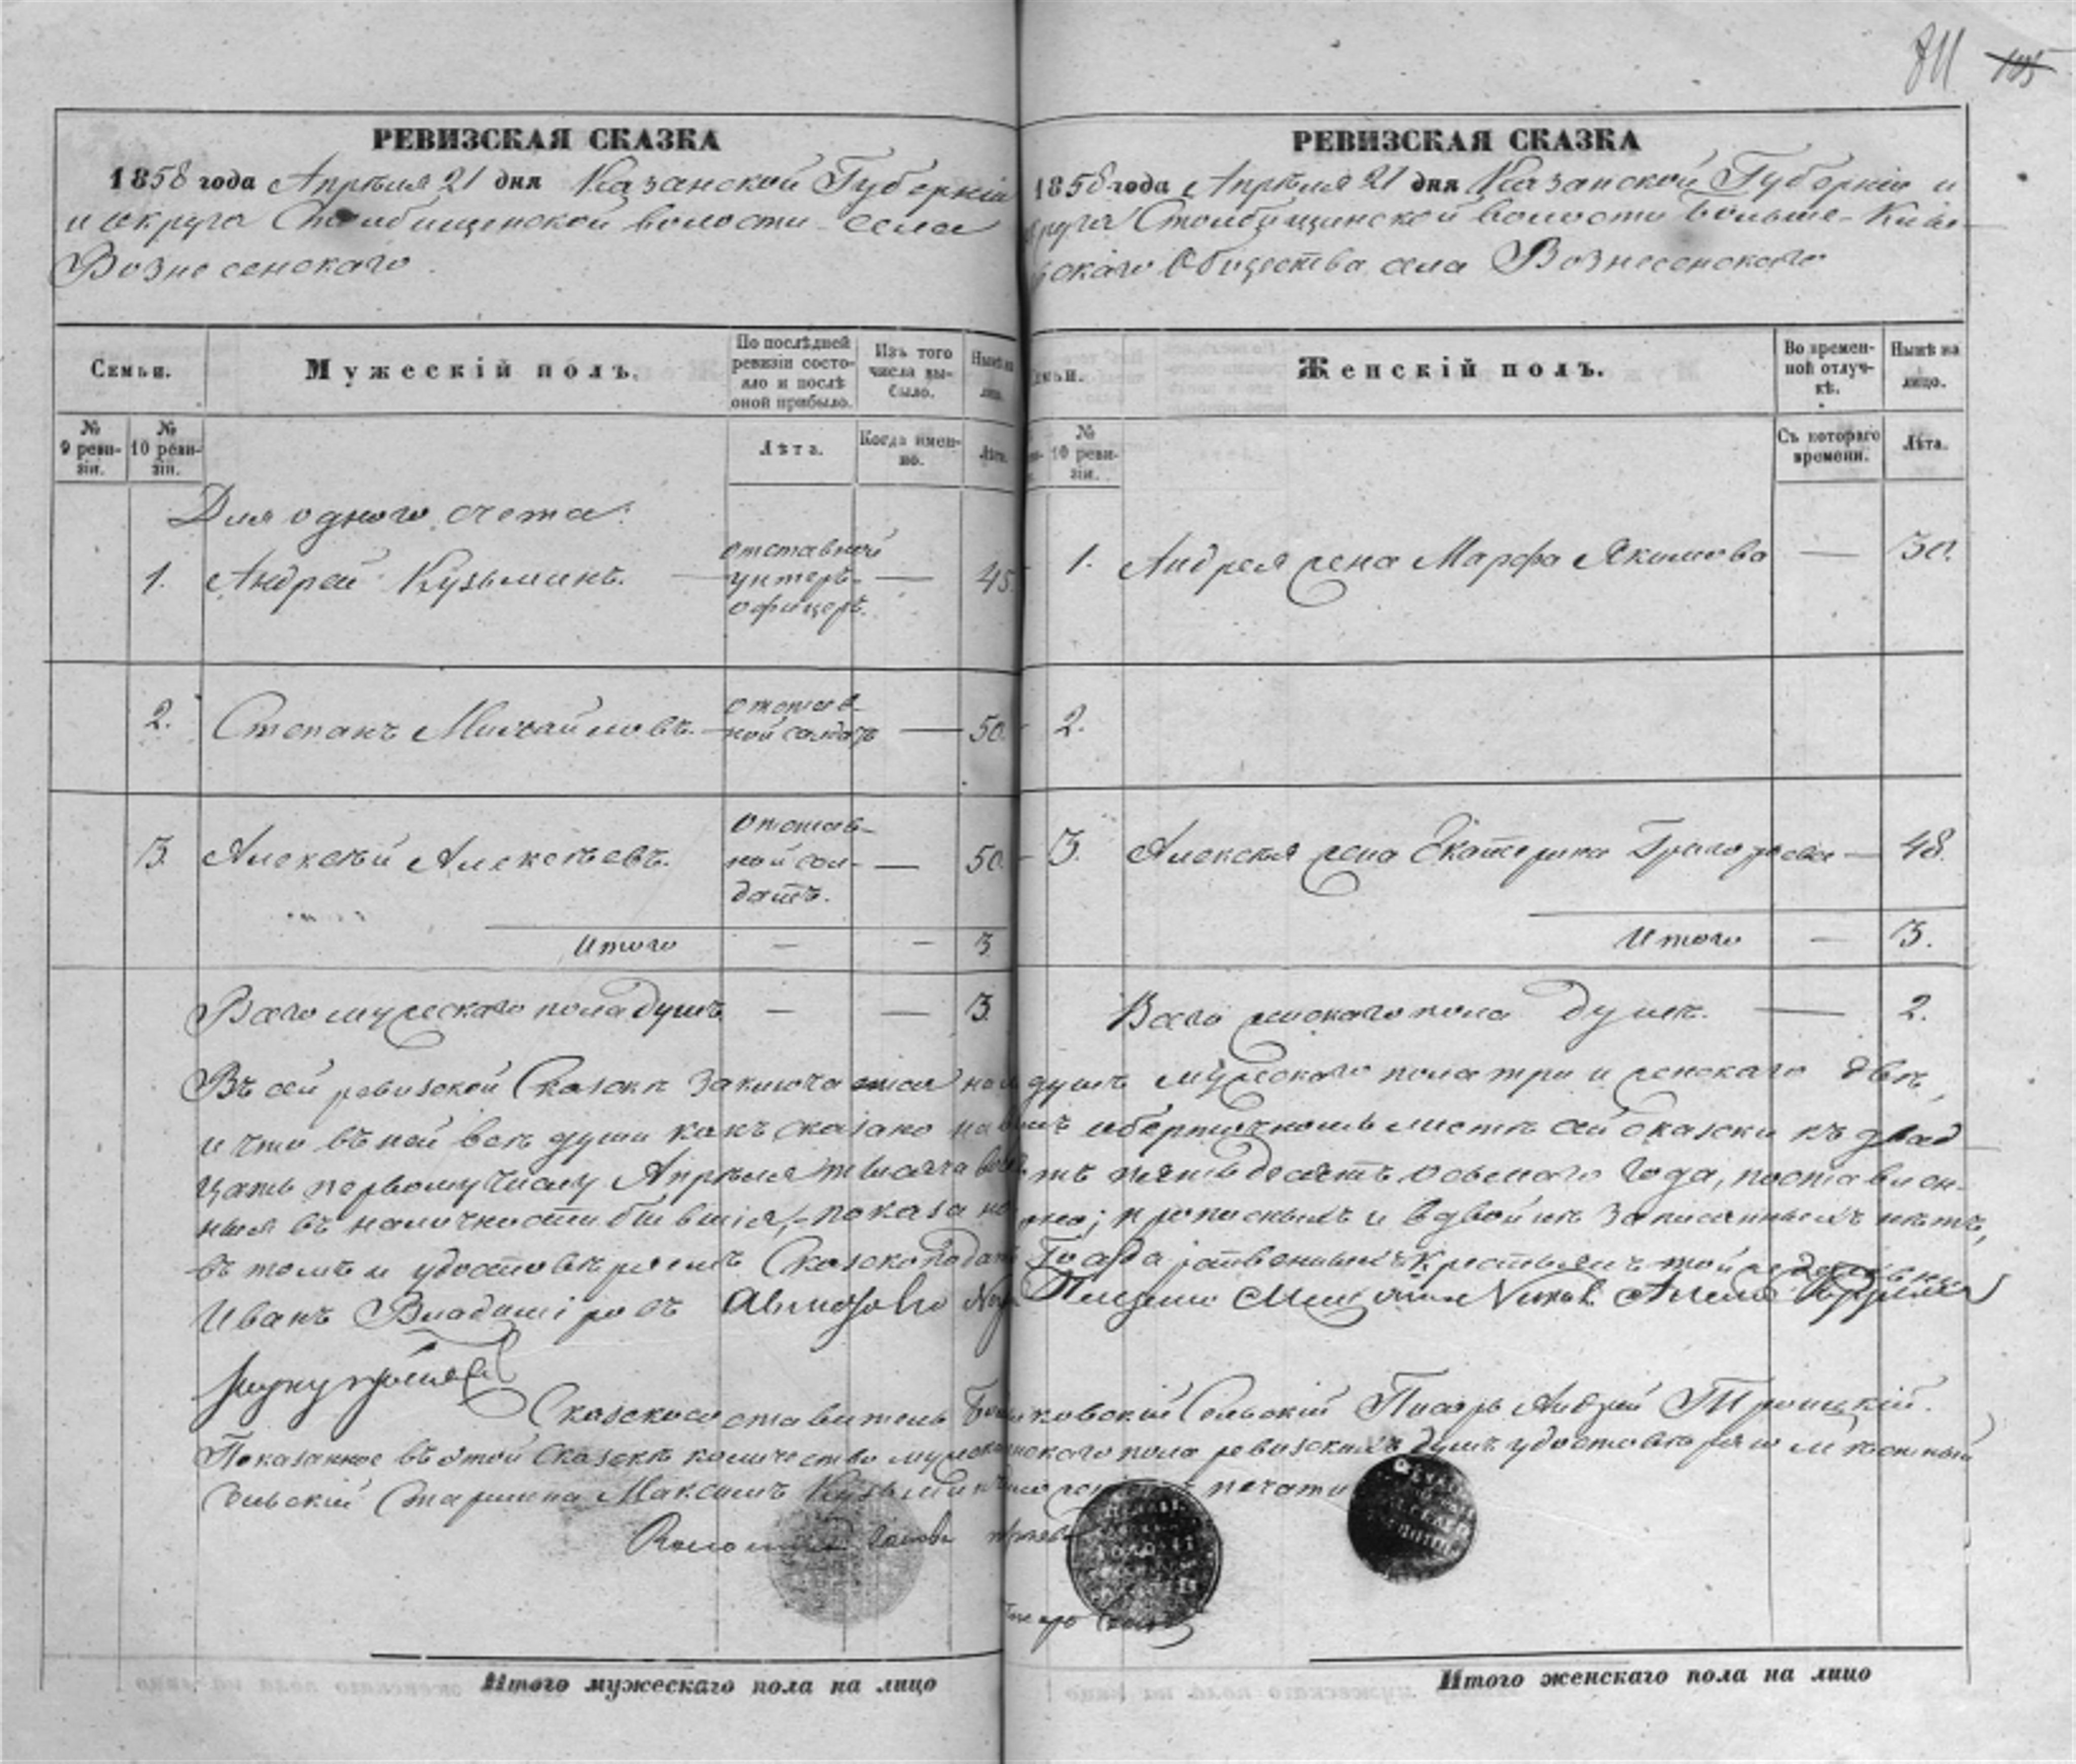 РЕВИЗСКАЯ СКАЗКА
1858 года Апрѣля 21 дня Казанской Губерніи
и округа Столбищенской волости села
Вознесенскаго.
Семьи.
Мужескій полъ.
По послѣдней
ревизіи состо-
яло и послѣ
оной прибыло.
Изъ того
числа вы-
было.
Нынѣ на
лицо.
№
9 реви-
зіи.
№
10 реви-
зіи.
Лѣта.
Когда имен-
но.
Лѣта.
Для одного счета:
1. Андрей Кузьминъ. —
отставной
унтеръ-
офицеръ.
— 45.
2. Степанъ Михайловъ. —
отстав-
ной солдатъ
— 50.
3. Алексѣй Алексѣевъ.
отстав-
ной сол-
датъ.
— 50.
Итого — — 3
Всего мужескаго пола душъ — — 3.
84 105
РЕВИЗСКАЯ СКАЗКА
1858 года Апрѣля 21 дня Казанской Губерніи и
округа Столбищинской волости Больше-
Общества села Вознесенскаго
Семьи.
Женскій полъ.
Во времен-
ной отлуч-
кѣ.
Нынѣ на
лицо.
№
10 реви-
зіи.
Съ котораго
времени.
Лѣта.
1. Андрея жена Марфа Якимова — 30.
2.
3. Алексѣя жена Екатерина Григорьева — 48.
Итого — 3.
Всего женскаго пола душъ. — 2.
Въ сей ревизской Сказкѣ заключа душъ мужескаго пола три и женскаго двѣ,
и что въ ней всѣ души какъ сказано на оберточномъ листѣ сей сказки къ двад
цать первому числу Апрѣля тысяча восемь сотъ пятьдесятъ осьмаго года, поставлен-
ныя въ наличности бывшія,-показано; пропускныхъ и вдвойнѣ записанныхъ нѣтъ,
въ томъ и удостовѣряемъ Сказкоподатели Государственныхъ Крестьянъ той деревни
Иванъ Владиміровъ
Сказкосоставитель Сельскій Писарь Андрей Троицкій.
Показанное въ этой Сказкѣ количество мужскаго и женскаго пола ревизскихъ душъ удостовѣряю мѣстный
Сельскій Старшина Максимъ Кузьминъ печати
Волостной Голова
Писарь
Итого мужескаго пола на лицо
Итого женскаго пола на лицо